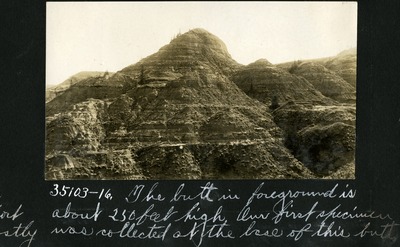 35103-16. The butt in foreground is
about 250 feet high. Our first specimen
was collected at the base of this butt